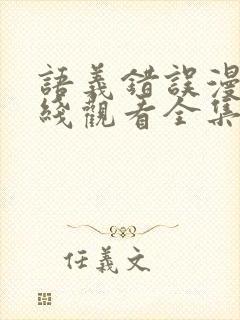 語義錯誤漫
綫觀看全集
任義文